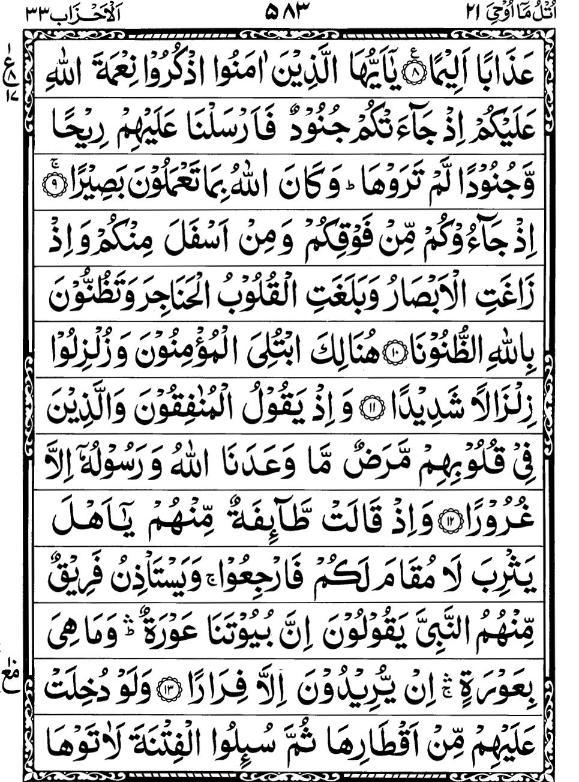 اُتْلُ مَآ اُوْحِیَ ۲۱ ۵۸۳ اَلْاَحْزَاب ۳۳
عَذَابًا اَلِیْمًا ۸ یٰۤاَیُّهَا الَّذِیْنَ اٰمَنُوا اذْكُرُوْا نِعْمَةَ اللّٰهِ
عَلَیْكُمْ اِذْ جَآءَتْكُمْ جُنُوْدٌ فَاَرْسَلْنَا عَلَیْهِمْ رِیْحًا
وَّجُنُوْدًا لَّمْ تَرَوْهَا ؕ وَكَانَ اللّٰهُ بِمَا تَعْمَلُوْنَ بَصِیْرًا ۹
اِذْ جَآءُوْكُمْ مِّنْ فَوْقِكُمْ وَمِنْ اَسْفَلَ مِنْكُمْ وَاِذْ
زَاغَتِ الْاَبْصَارُ وَبَلَغَتِ الْقُلُوْبُ الْحَنَاجِرَ وَتَظُنُّوْنَ
بِاللّٰهِ الظُّنُوْنَا ۱۰ هُنَالِكَ ابْتُلِیَ الْمُؤْمِنُوْنَ وَزُلْزِلُوْا
زِلْزَالًا شَدِیْدًا ۱۱ وَاِذْ یَقُوْلُ الْمُنٰفِقُوْنَ وَالَّذِیْنَ
فِیْ قُلُوْبِهِمْ مَّرَضٌ مَّا وَعَدَنَا اللّٰهُ وَرَسُوْلُهٗۤ اِلَّا
غُرُوْرًا ۱۲ وَاِذْ قَالَتْ طَّآىِٕفَةٌ مِّنْهُمْ یٰۤاَهْلَ
یَثْرِبَ لَا مُقَامَ لَكُمْ فَارْجِعُوْا ۚ وَیَسْتَاْذِنُ فَرِیْقٌ
مِّنْهُمُ النَّبِیَّ یَقُوْلُوْنَ اِنَّ بُیُوْتَنَا عَوْرَةٌ ۛؕ وَمَا هِیَ
بِعَوْرَةٍ ۛۚ اِنْ یُّرِیْدُوْنَ اِلَّا فِرَارًا ۱۳ وَلَوْ دُخِلَتْ
عَلَیْهِمْ مِّنْ اَقْطَارِهَا ثُمَّ سُىِٕلُوا الْفِتْنَةَ لَاٰتَوْهَا